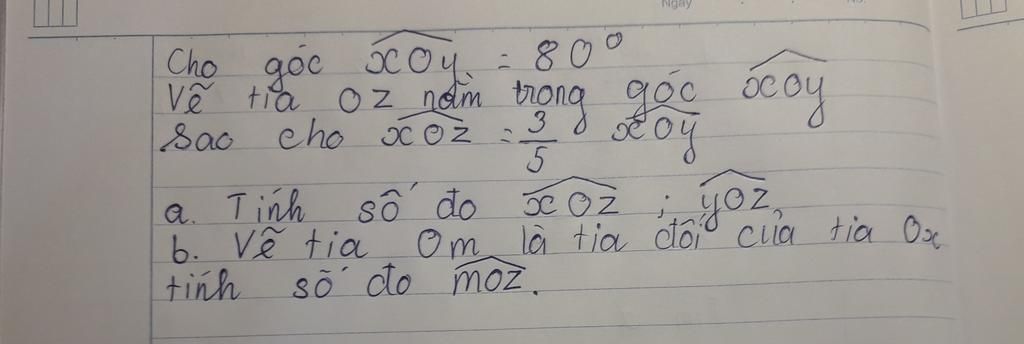 Ngày
Cho góc xOy = 80°
Vẽ tia Oz nằm trong góc xOy
sao cho xOz = 3/5 xOy
a. Tính số đo xOz ; yOz.
b. Vẽ tia Om là tia đối của tia Ox
tính số đo mOz.